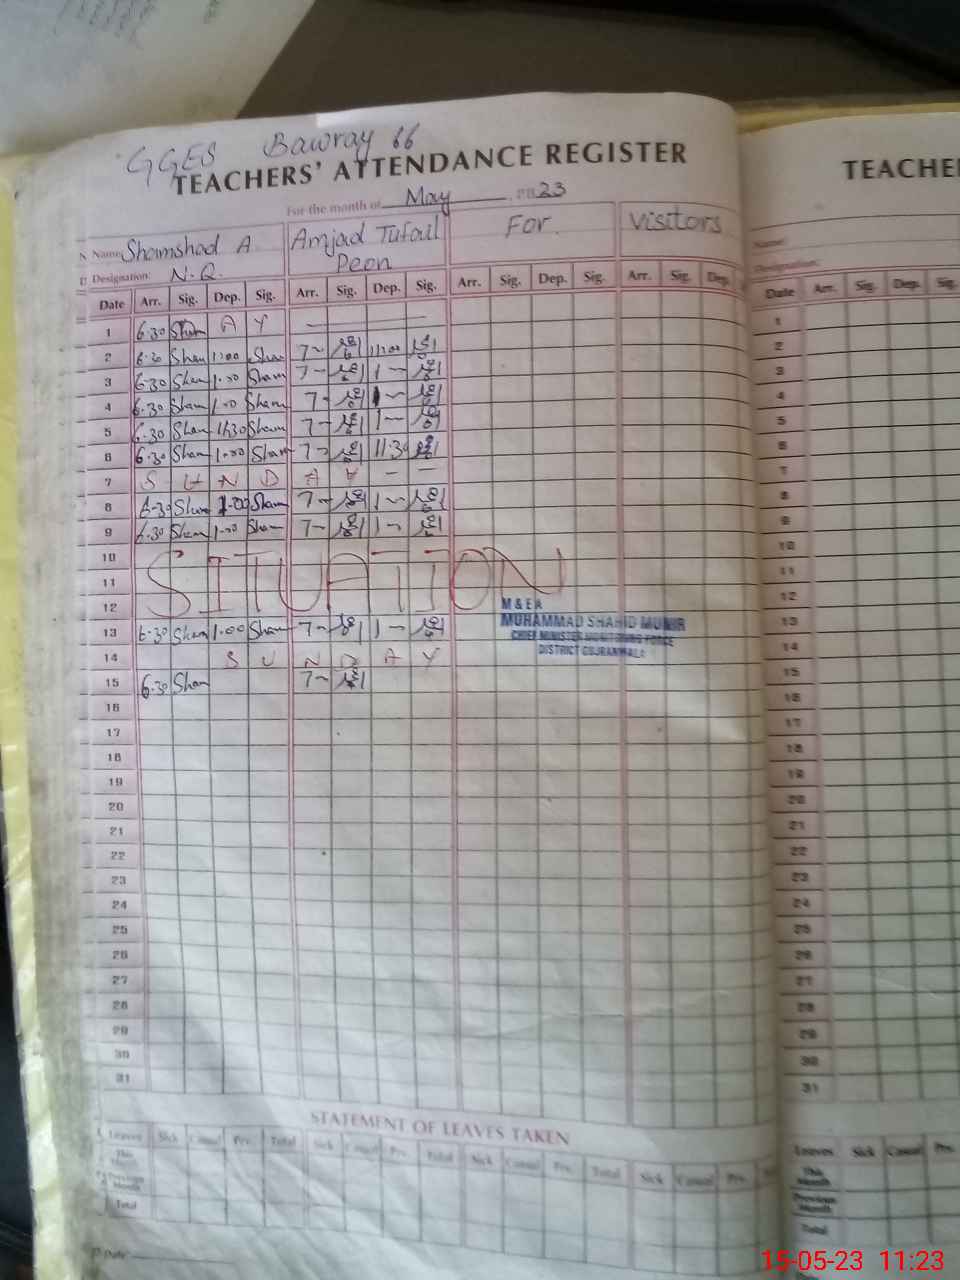 GGES Bawray 66
TEACHERS' ATTENDANCE REGISTER
For the month of May 23
Name: Shamshad A Amjad Tufail For. Visitors
Designation: N.Q. Peon
Date Arr. Sig. Dep. Sig. Arr. Sig. Dep. Sig. Arr. Sig. Dep. Sig. Arr. Sig. Dep.
1 6.30 Sham A Y — —
2 6.30 Sham 1:00 Sham 7 — 11:00
3 6.30 Sham 1.00 Sham 7 — 1 —
4 6.30 Sham 1.00 Sham 7 - 1 —
5 6.30 Sham 11.30 Sham 7 — 1 —
6 6.30 Sham 1.00 Sham 7 — 11.30
7 S U N D A Y — —
8 6.30 Sham 1.00 Sham 7 — 1 —
9 6.30 Sham 1.00 Sham 7 — 1 —
10
11 SITUATION
12
M & E A
MUHAMMAD SHAHID MUNIR
CHIEF MINISTER MONITORING FORCE
DISTRICT GUJRANWALA
13 6.30 Sham 1.00 Sham 7 — 1 —
14 S U N D A Y
15 6.30 Sham 7 —
16
17
18
19
20
21
22
23
24
25
26
27
28
29
30
31
STATEMENT OF LEAVES TAKEN
Leaves Sick Casual Prv. Total Sick Casual Prv. Total Sick Casual Prv. Total Sick Casual Prv.
This Month
Previous Month
Total
Date:
TEACHE
Name:
Designation:
Date Arr. Sig. Dep. Sig.
1
2
3
4
5
6
7
8
9
10
11
12
13
14
15
16
17
18
19
20
21
22
23
24
25
26
27
28
29
30
31
Leaves Sick Casual Prv.
This Month
Previous Month
Total
15-05-23 11:23